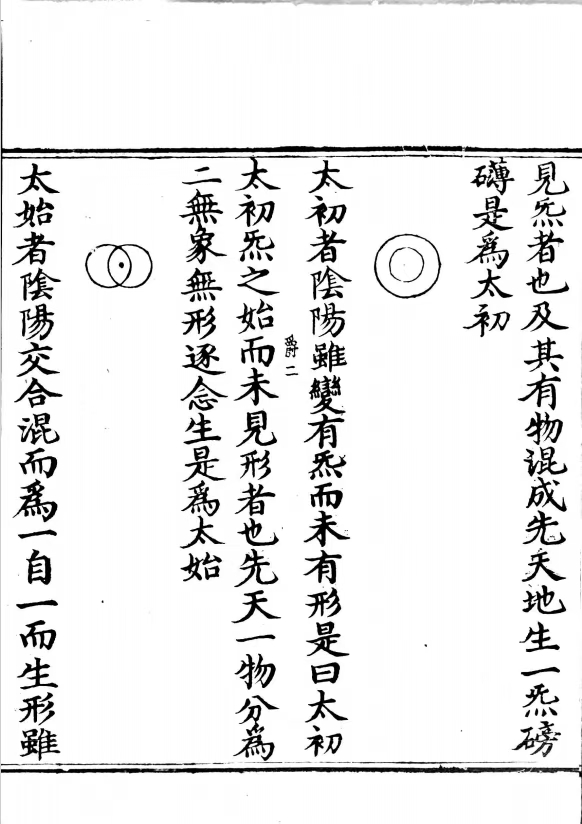 見炁者也及其有物混成先天地生一炁磅
礴是爲太初
太初者陰陽雖變有炁而未有形是曰太初
爵二
太初炁之始而未見形者也先天一物分爲
二無象無形逐念生是爲太始
太始者陰陽交合混而爲一自一而生形雖